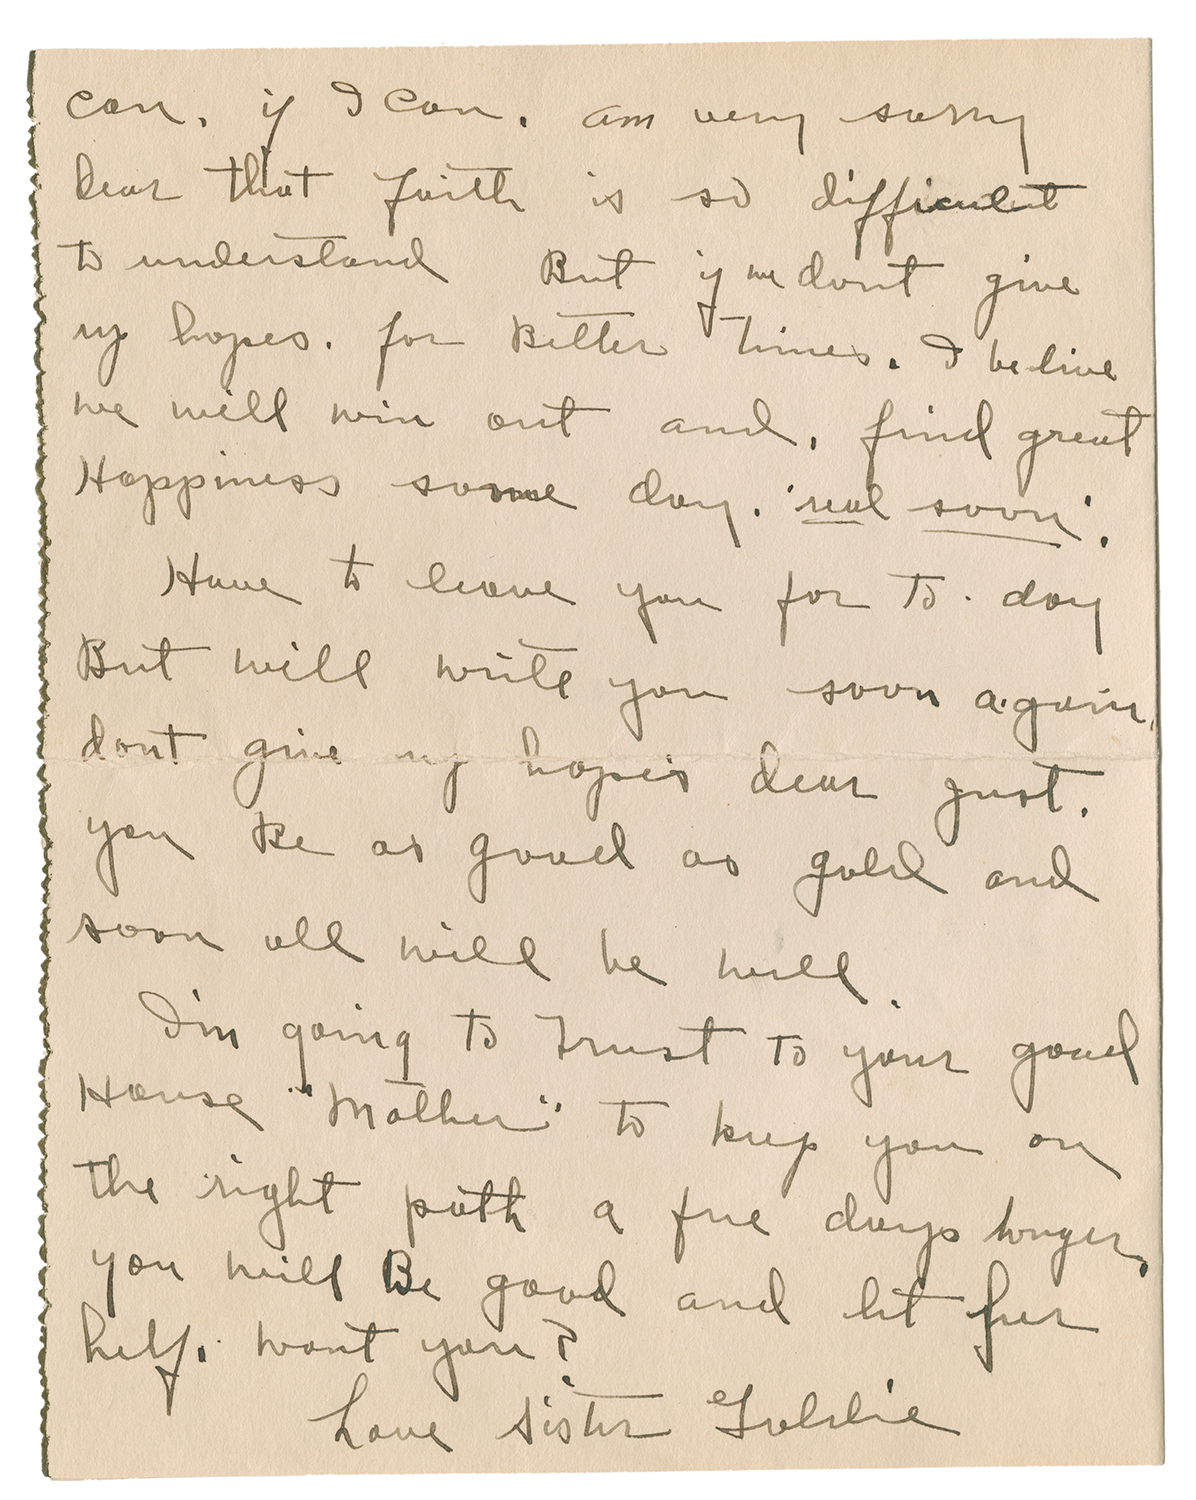 can, if I can. am very sorry
dear that faith is so difficult
to understand But if we dont give
up hopes. for Better times. I belive
we will win out and, find great
Happiness some day. 'real soon'.
Have to leave you for to-day
But will write you soon again,
dont give up hopes dear just.
you Be as good as gold and
soon all will be well.
I'm going to Trust to your good
House "Mother" to keep you on
the right path a few days longer,
you will Be good and let her
help. wont you?
Love Sister Goldie